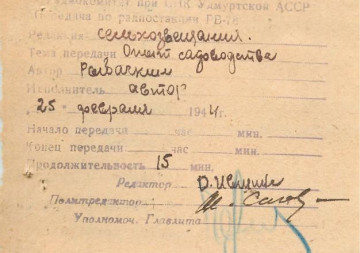 Радиокомитет при СНК Удмуртской АССР
Передача по радиостанции РВ-78
Редакция сельхозвещания.
Тема передачи Опыт садоводства
Автор
Исполнитель автор
25 февраля 1944
Начало передачи час мин.
Конец передачи час мин.
Продолжительность 15 мин.
Редактор
Политредактор
Уполномоч. Главлита